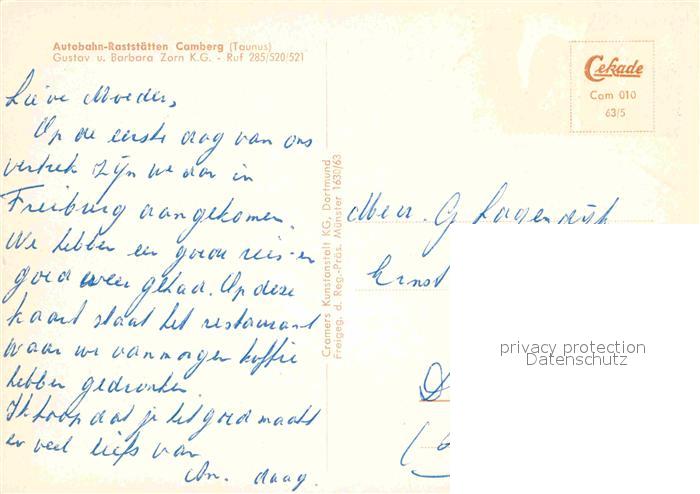 Autobahn-Raststätten Camberg (Taunus)
Gustav u. Barbara Zorn K.G. - Ruf 285/520/521
Cekade
Cam 010
63/5
Lieve Moeder,
Op de eerste dag van ons
vertrek zijn we dan in
Freiburg aangekomen.
We hebben een goede reis en
goed weer gehad. Op deze
kaart staat het restaurant
waar we vanmorgen koffie
hebben gedronken.
Ik hoop dat je het goed maakt
en veel liefs van
daag.
Cramers Kunstanstalt KG, Dortmund
Freigeg. d. Reg.-Präs. Münster 1630/63
Mevr. G Lagendijk
Ernst
D
privacy protection
Datenschutz